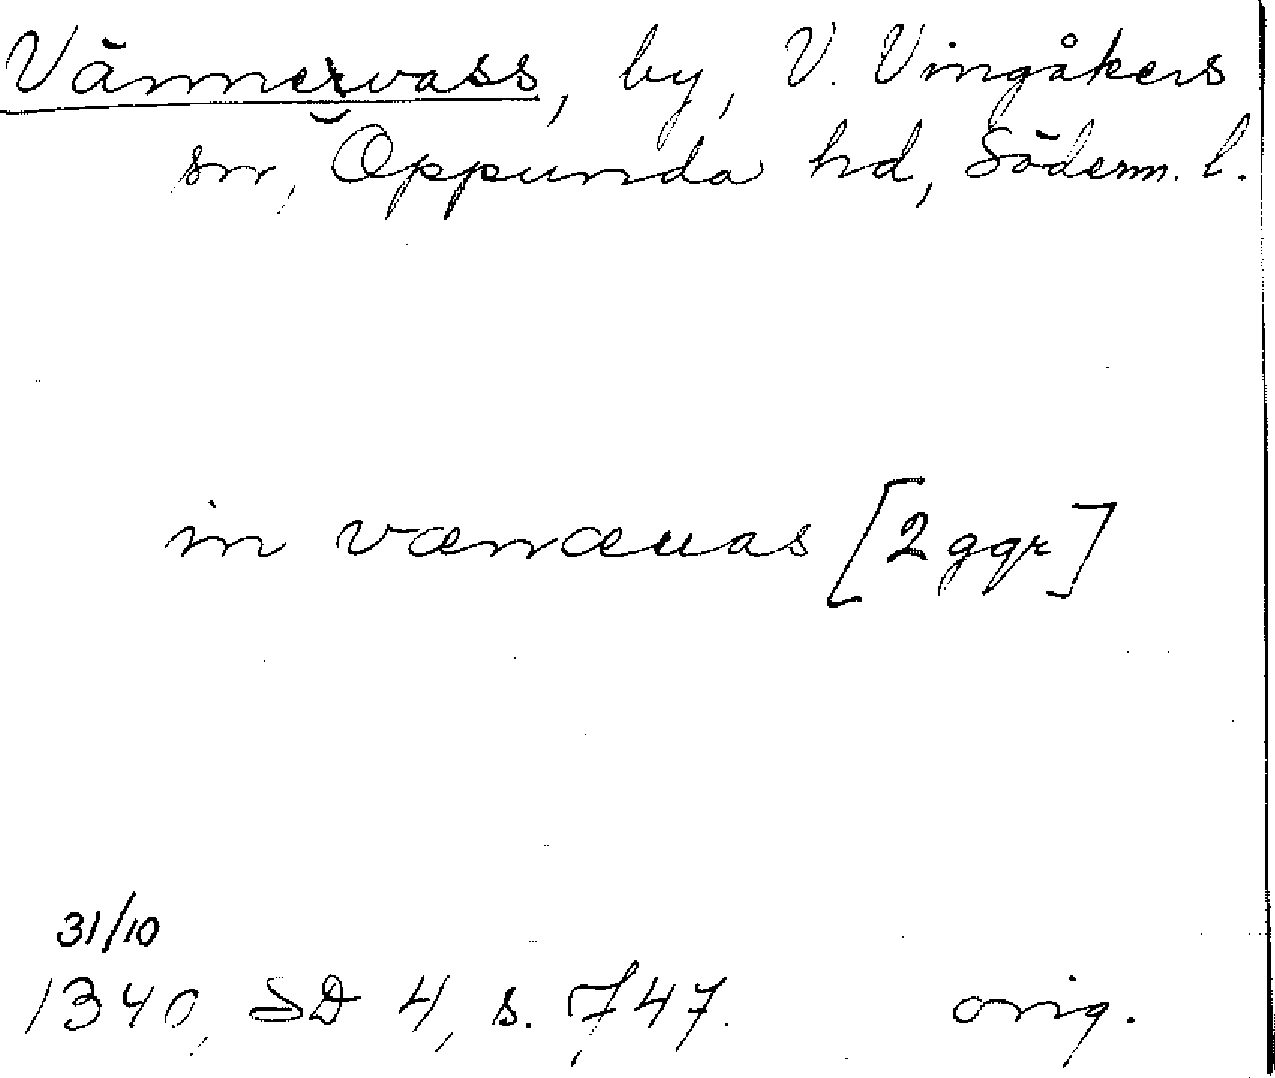 Vännevass, by, V. Vingåkers
sn, Oppunda hd, Söderm. l.
in vænæuas [2 ggr]
31/10
1340, SD 4, s. 747. orig.